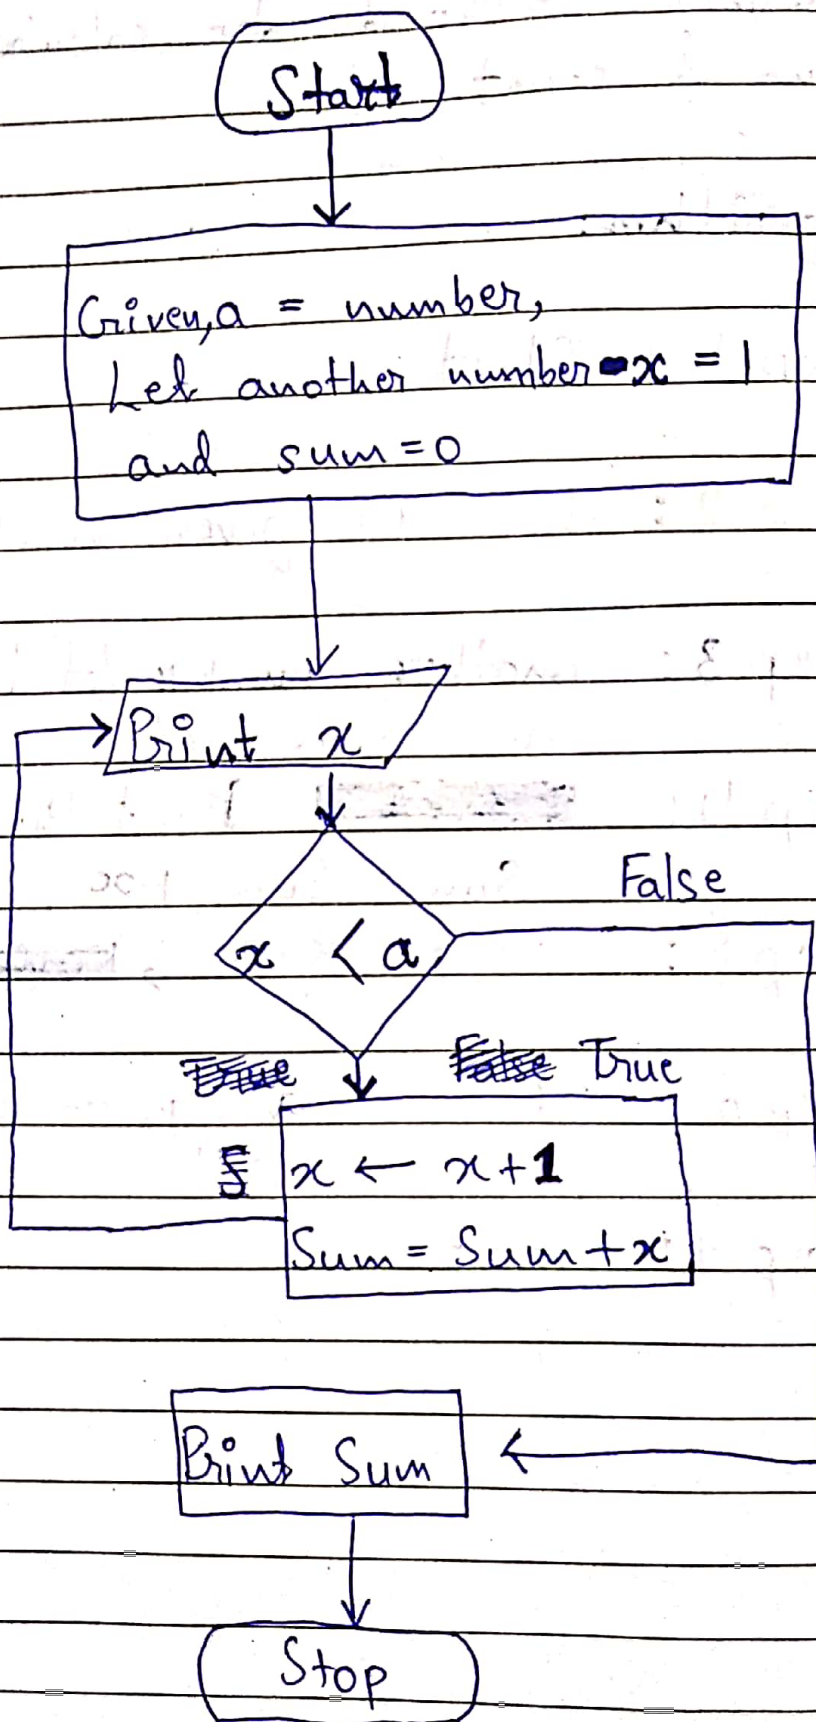 Start
Given, a = number,
Let another number x = 1
and sum = 0
Print x
False
x < a
True
x ← x+1
Sum = Sum + x
Print Sum
Stop